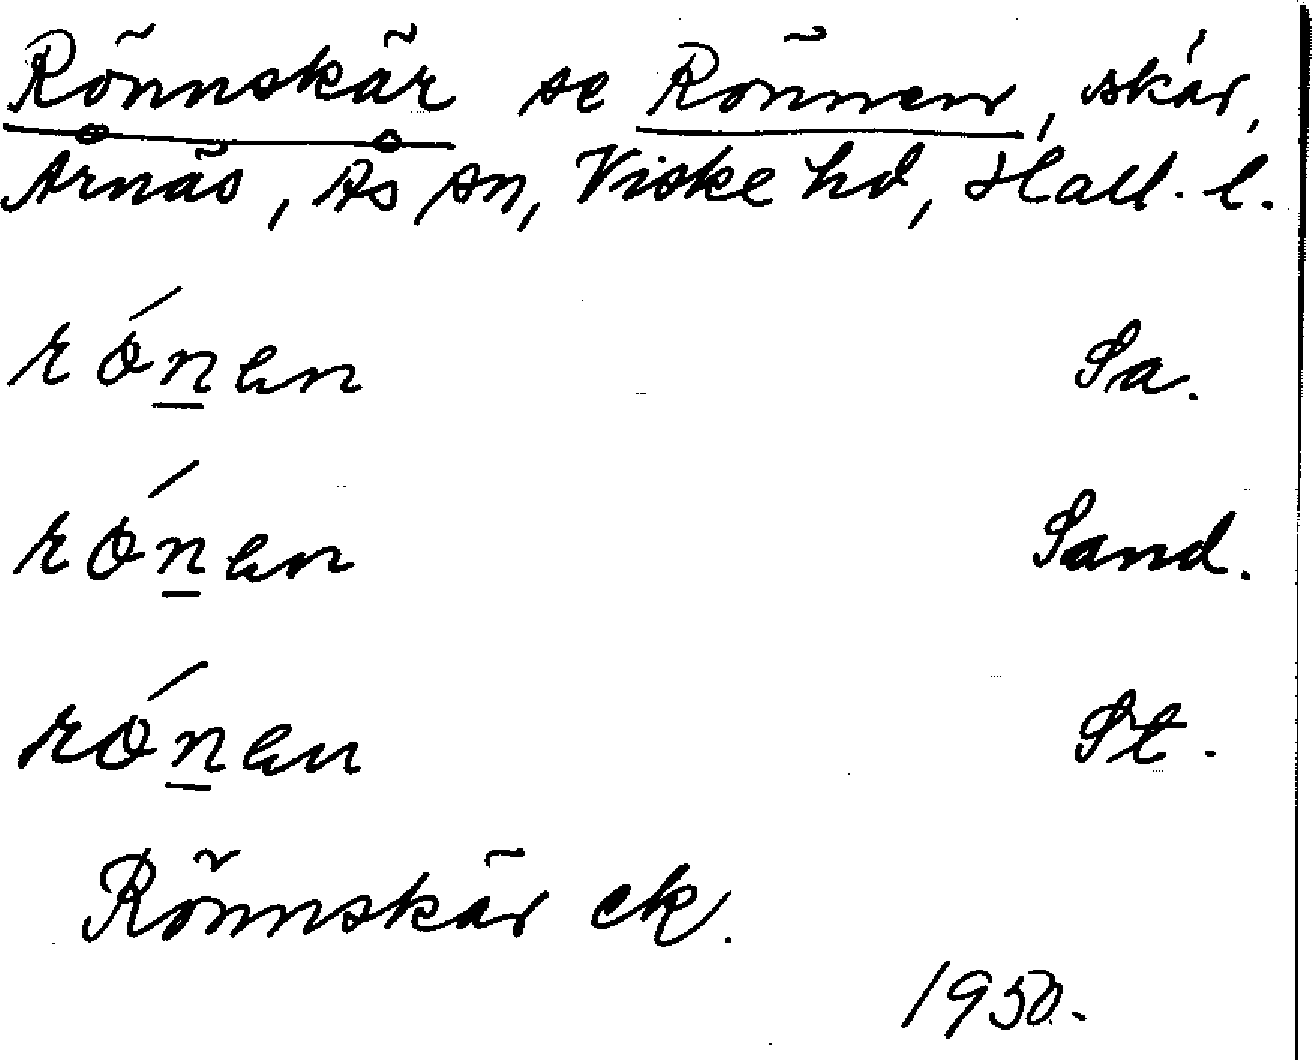 Rönnskär se Rönnen, skär,
Årnäs, Ås sn, Viske hd, Hall. l.
rǿn̲ən Sa.
rǿn̲ən Sand.
rǿn̲ən St.
Rönnskär ek.
1950.